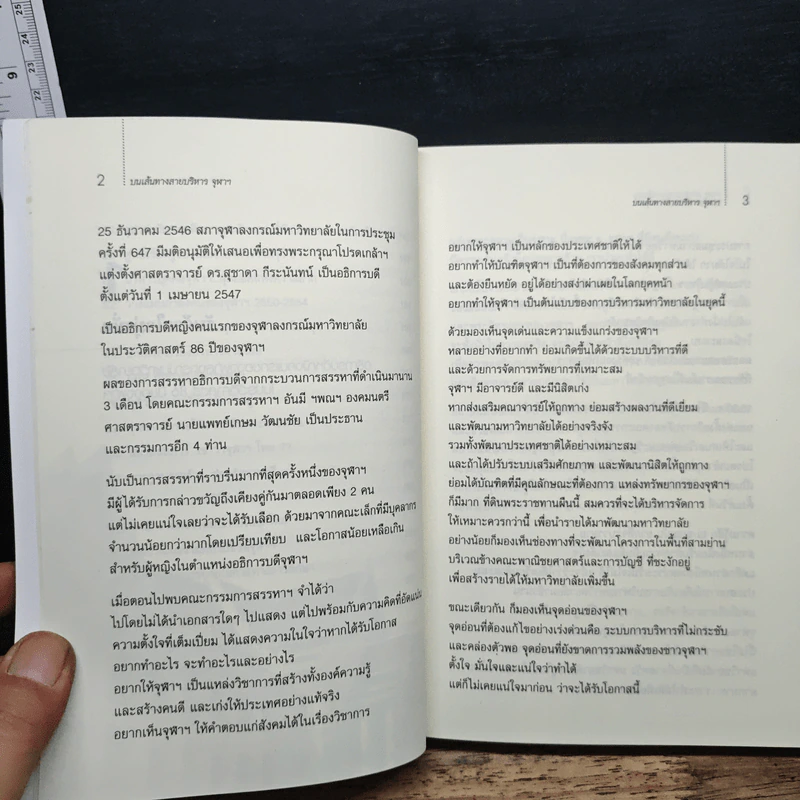 25
24
23
22
9
2
บนเส้นทางสายบริหาร จุฬาฯ
25 ธันวาคม 2546 สภาจุฬาลงกรณ์มหาวิทยาลัยในการประชุม
ครั้งที่ 647 มีมติอนุมัติให้เสนอเพื่อทรงพระกรุณาโปรดเกล้าฯ
แต่งตั้งศาสตราจารย์ ดร.สุชาดา กีระนันทน์ เป็นอธิการบดี
ตั้งแต่วันที่ 1 เมษายน 2547
เป็นอธิการบดีหญิงคนแรกของจุฬาลงกรณ์มหาวิทยาลัย
ในประวัติศาสตร์ 86 ปีของจุฬาฯ
ผลของการสรรหาอธิการบดีจากกระบวนการสรรหาที่ดำเนินมานาน
3 เดือน โดยคณะกรรมการสรรหาฯ อันมี ฯพณฯ องคมนตรี
ศาสตราจารย์ นายแพทย์เกษม วัฒนชัย เป็นประธาน
และกรรมการอีก 4 ท่าน
นับเป็นการสรรหาที่ราบรื่นมากที่สุดครั้งหนึ่งของจุฬาฯ
มีผู้ได้รับการกล่าวขวัญถึงเคียงคู่กันมาตลอดเพียง 2 คน
แต่ไม่เคยแน่ใจเลยว่าจะได้รับเลือก ด้วยมาจากคณะเล็กที่มีบุคลากร
จำนวนน้อยกว่ามากโดยเปรียบเทียบ และโอกาสน้อยเหลือเกิน
สำหรับผู้หญิงในตำแหน่งอธิการบดีจุฬาฯ
เมื่อตอนไปพบคณะกรรมการสรรหาฯ จำได้ว่า
ไปโดยไม่ได้นำเอกสารใดๆ ไปแสดง แต่ไปพร้อมกับความคิดที่อัดแน่น
ความตั้งใจที่เต็มเปี่ยม ได้แสดงความในใจว่าหากได้รับโอกาส
อยากทำอะไร จะทำอะไรและอย่างไร
อยากให้จุฬาฯ เป็นแหล่งวิชาการที่สร้างทั้งองค์ความรู้
และสร้างคนดี และเก่งให้ประเทศอย่างแท้จริง
อยากเห็นจุฬาฯ ให้คำตอบแก่สังคมได้ในเรื่องวิชาการ
บนเส้นทางสายบริหาร จุฬาฯ
3
อยากให้จุฬาฯ เป็นหลักของประเทศชาติให้ได้
อยากทำให้บัณฑิตจุฬาฯ เป็นที่ต้องการของสังคมทุกส่วน
และต้องยืนหยัด อยู่ได้อย่างสง่าผ่าเผยในโลกยุคหน้า
อยากทำให้จุฬาฯ เป็นต้นแบบของการบริหารมหาวิทยาลัยในยุคนี้
ด้วยมองเห็นจุดเด่นและความแข็งแกร่งของจุฬาฯ
หลายอย่างที่อยากทำ ย่อมเกิดขึ้นได้ด้วยระบบบริหารที่ดี
และด้วยการจัดการทรัพยากรที่เหมาะสม
จุฬาฯ มีอาจารย์ดี และมีนิสิตเก่ง
หากส่งเสริมคณาจารย์ให้ถูกทาง ย่อมสร้างผลงานที่ดีเยี่ยม
และพัฒนามหาวิทยาลัยได้อย่างจริงจัง
รวมทั้งพัฒนาประเทศชาติได้อย่างเหมาะสม
และถ้าได้ปรับระบบเสริมศักยภาพ และพัฒนานิสิตให้ถูกทาง
ย่อมได้บัณฑิตที่มีคุณลักษณะที่ต้องการ แหล่งทรัพยากรของจุฬาฯ
ก็มีมาก ที่ดินพระราชทานผืนนี้ สมควรที่จะได้บริหารจัดการ
ให้เหมาะควรกว่านี้ เพื่อนำรายได้มาพัฒนามหาวิทยาลัย
อย่างน้อยก็มองเห็นช่องทางที่จะพัฒนาโครงการในพื้นที่สามย่าน
บริเวณข้างคณะพาณิชยศาสตร์และการบัญชี ที่ชะงักอยู่
เพื่อสร้างรายได้ให้มหาวิทยาลัยเพิ่มขึ้น
ขณะเดียวกัน ก็มองเห็นจุดอ่อนของจุฬาฯ
จุดอ่อนที่ต้องแก้ไขอย่างเร่งด่วนคือ ระบบการบริหารที่ไม่กระชับ
และคล่องตัวพอ จุดอ่อนที่ยังขาดการรวมพลังของชาวจุฬาฯ
ตั้งใจ มั่นใจและแน่ใจว่าทำได้
แต่ก็ไม่เคยแน่ใจมาก่อน ว่าจะได้รับโอกาสนี้